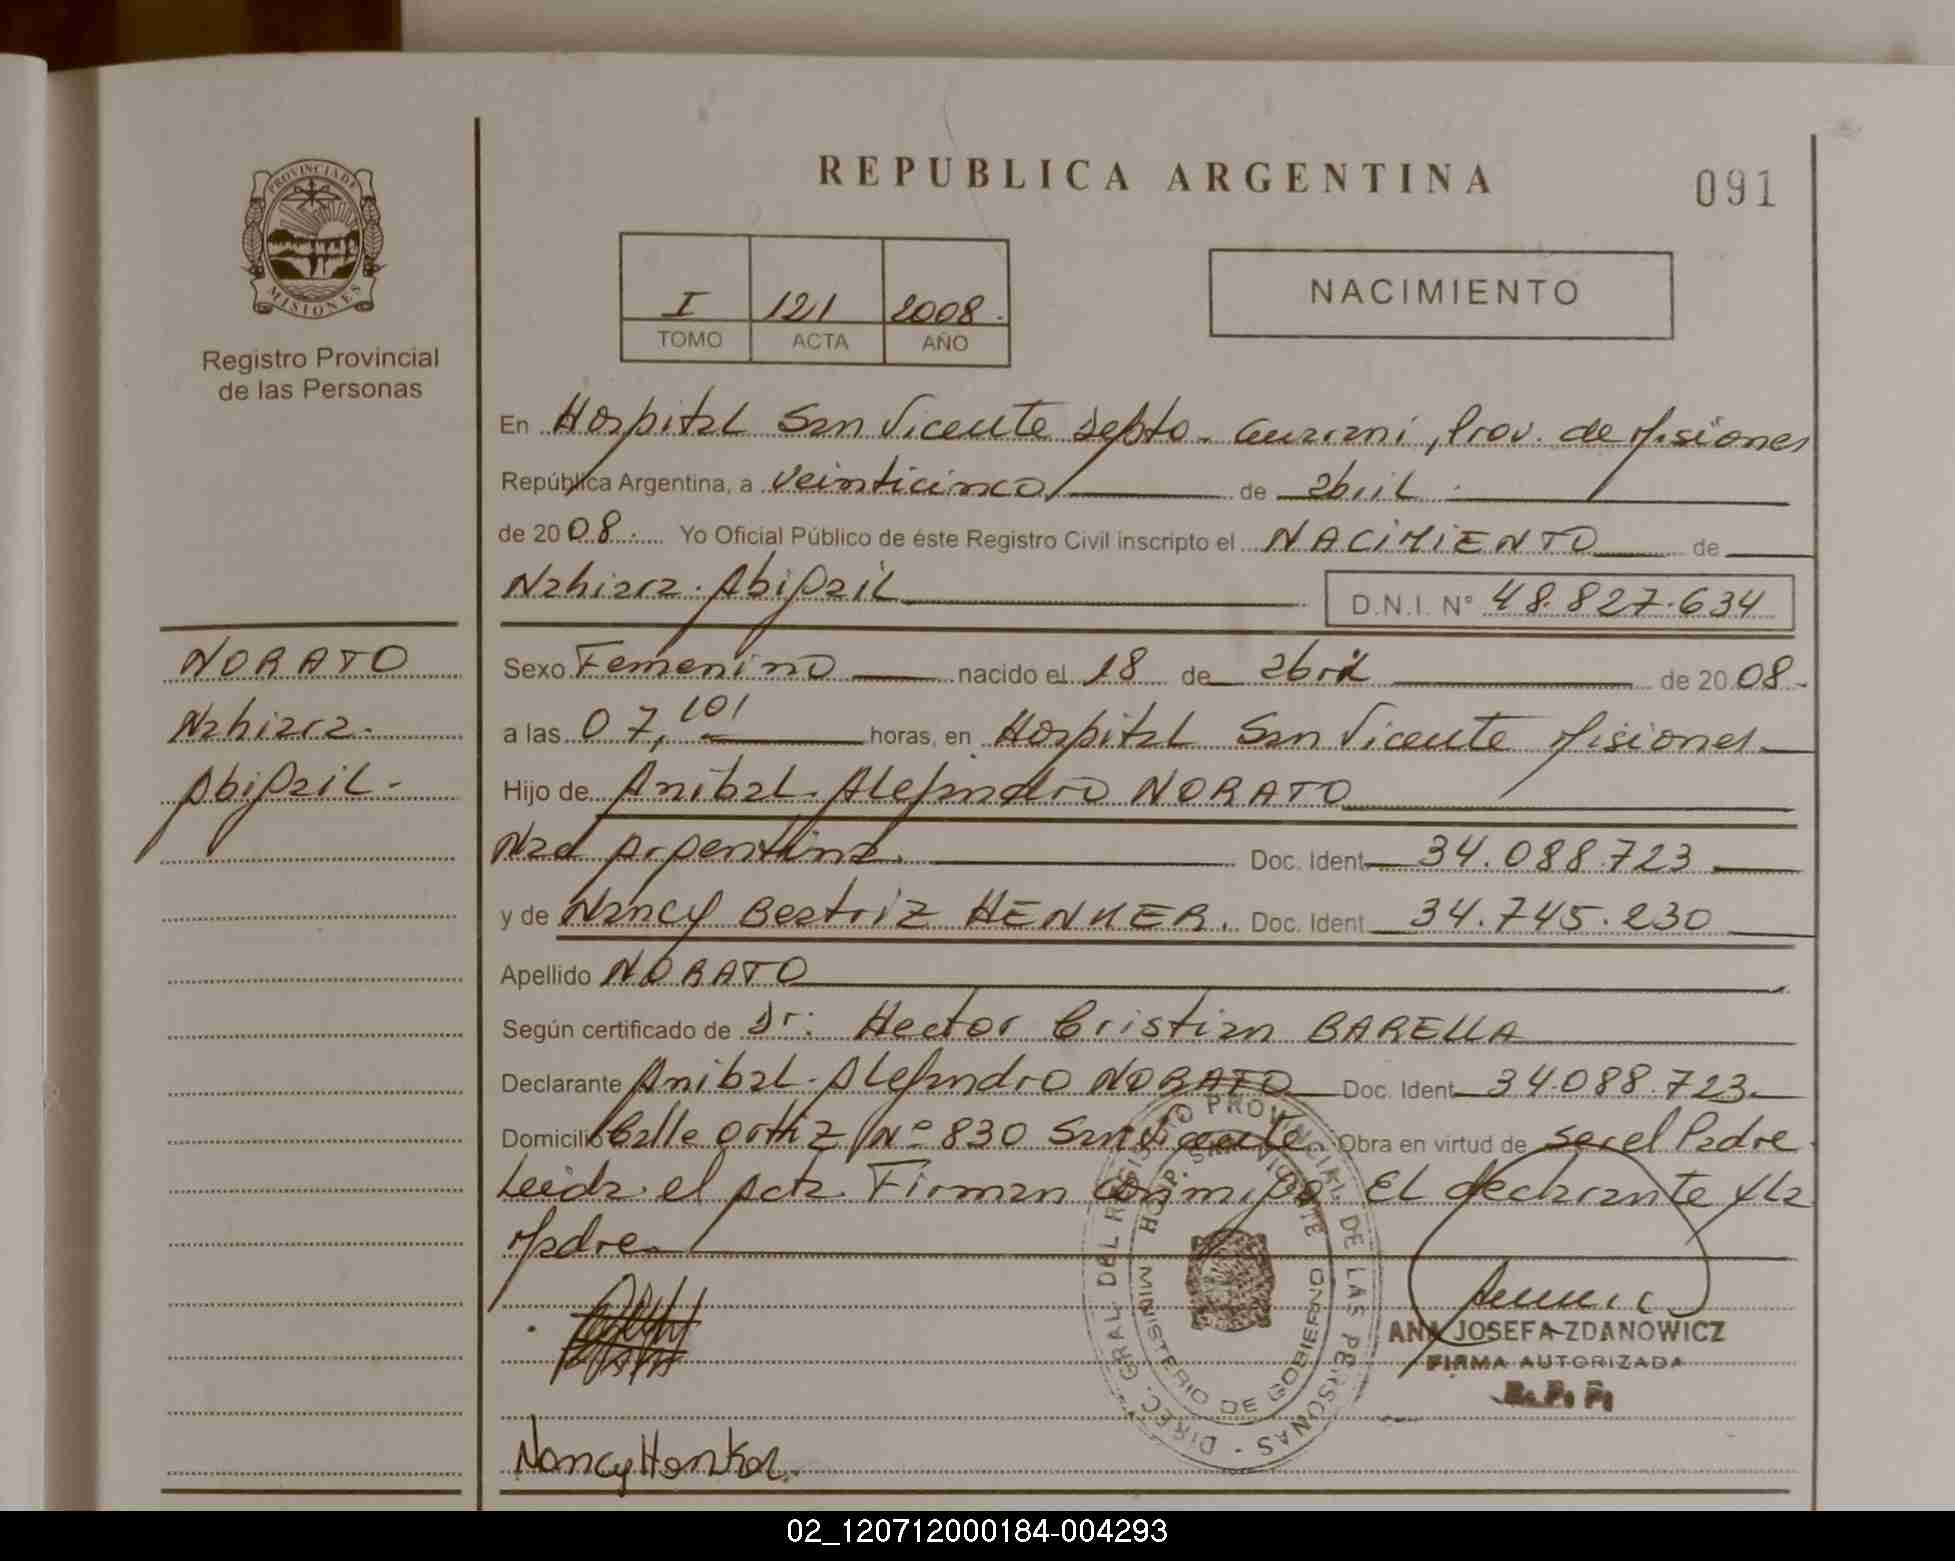 REPUBLICA ARGENTINA
091
PROVINCIA DE
MISIONES
Registro Provincial
de las Personas
I 121 2008.
TOMO ACTA AÑO
NACIMIENTO
En Hospital San Vicente Depto. Guarani, Prov. de Misiones
República Argentina, a veinticinco de abril
de 2008. Yo Oficial Público de éste Registro Civil inscripto el NACIMIENTO de
Nahiara Abigail D.N.I. N° 48.827.634
NORATO
Nahiara
Abigail
Sexo Femenino nacido el 18 de abril de 2008.
a las 07,101 horas, en Hospital San Vicente Misiones
Hijo de Anibal Alejandro NORATO
Nac Argentina. Doc. Ident 34.088.723
y de Nancy Beatriz HENKER. Doc. Ident 34.745.230
Apellido NORATO
Según certificado de Dr: Hector Cristian BARELLA
Declarante Anibal Alejandro NORATO Doc. Ident 34.088.723
Domicilio Calle Ortiz N° 830 San Vicente Obra en virtud de ser el Padre
Leida el Acta Firman conmigo El declarante y la
Madre
DIREC. GRAL. DEL REGISTRO PROVINCIAL DE LAS PERSONAS
HOSP. SAN VICENTE
MINISTERIO DE GOBIERNO
ANA JOSEFA ZDANOWICZ
FIRMA AUTORIZADA
R. P. P.
Nancy Henker.
02_120712000184-004293